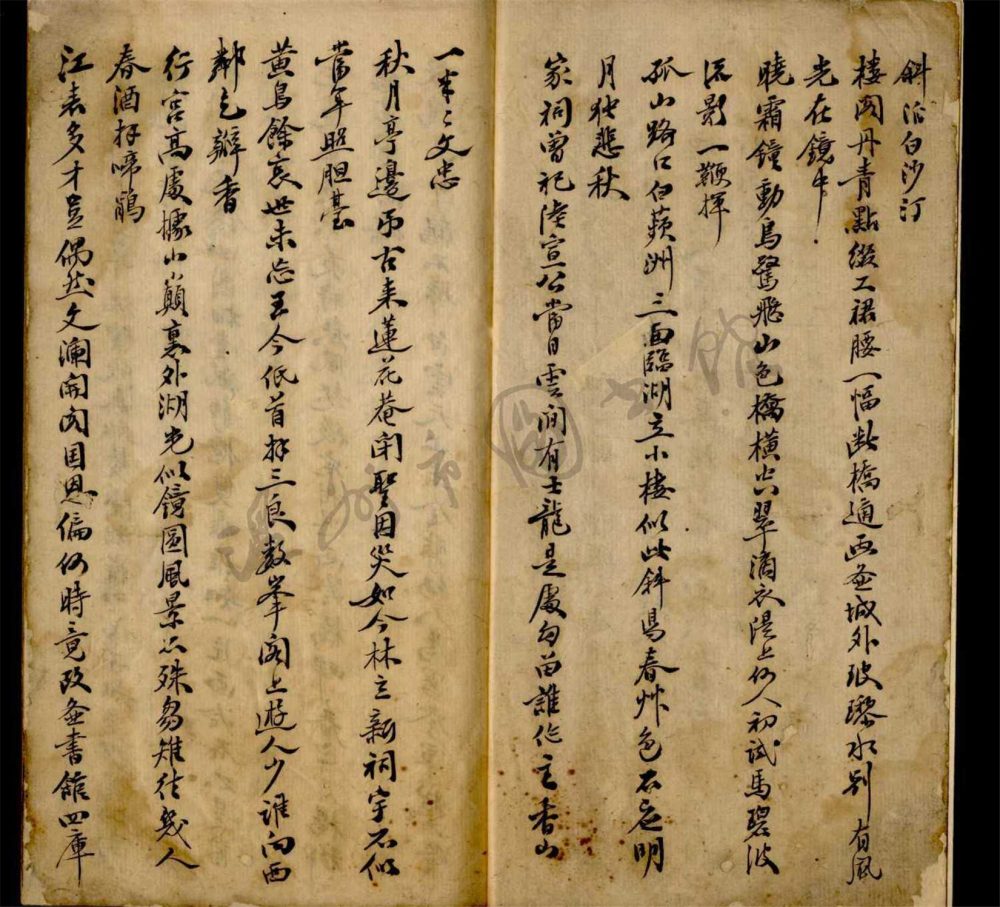 斜沿白沙汀
樓閣丹青點綴工裙腰一幅斷橋通西泠城外玻瓈水別有風
光在鏡中
曉霜鐘動鳥驚飛山色橋橫翠滴衣湜上何人初試馬碧波
流影一鞭揮
孤山路口白蘋洲三面臨湖立小樓似此斜陽春艸色不应明
月独悲秋
家祠曾祀陸宣公當日雲间有士龍是處勾留誰作主香山
一半半文忠
秋月亭邊吊古来蓮花菴闭聖因災如今林立新祠宇不似
當年照胆臺
黄鳥餘哀世未忘至今低首拜三良数峯阁上遊人少誰向西
鄰乞瓣香
行宮高處據山巔裏外湖光似鏡圆風景不殊芻雉往幾人
春酒拜啼鵑
江表多才豈偶然文澜開阁国恩偏何時竟改圖書館四庫